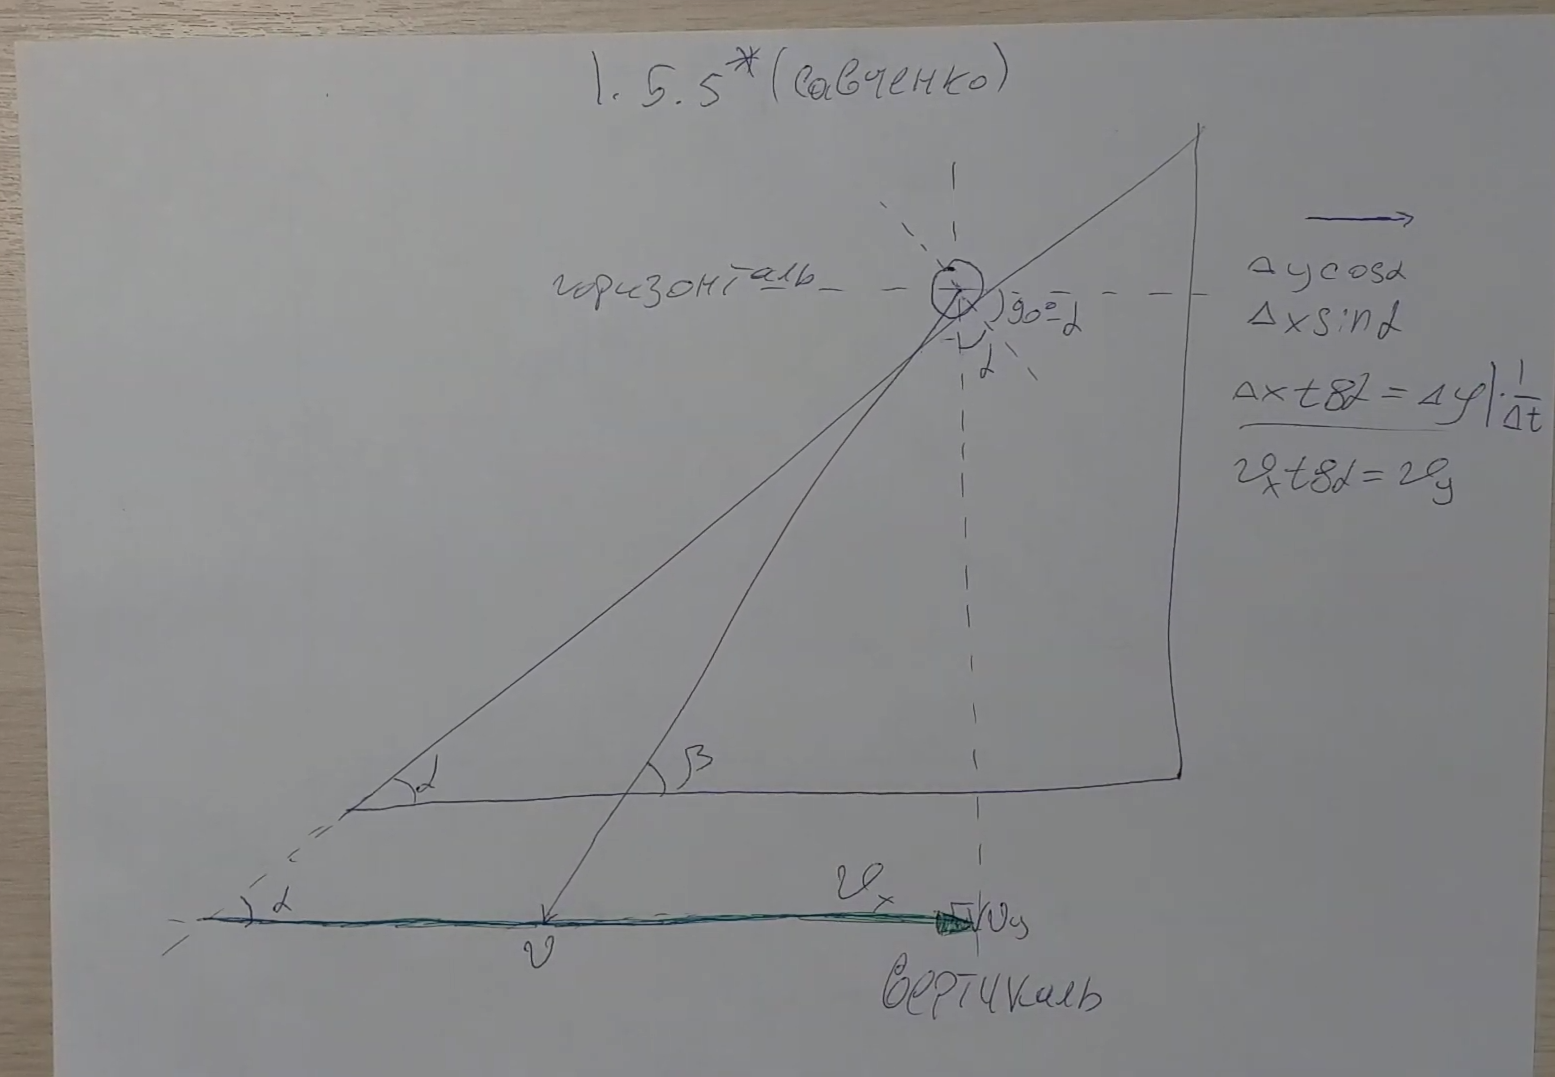 1.5.5* (Савченко)
горизонталь
90°-α
α
Δy cosα
Δx sinα
Δx tgα = Δy | · 1/Δt
v_x tgα = v_y
α
β
α
v_x
v
v_y
вертикаль